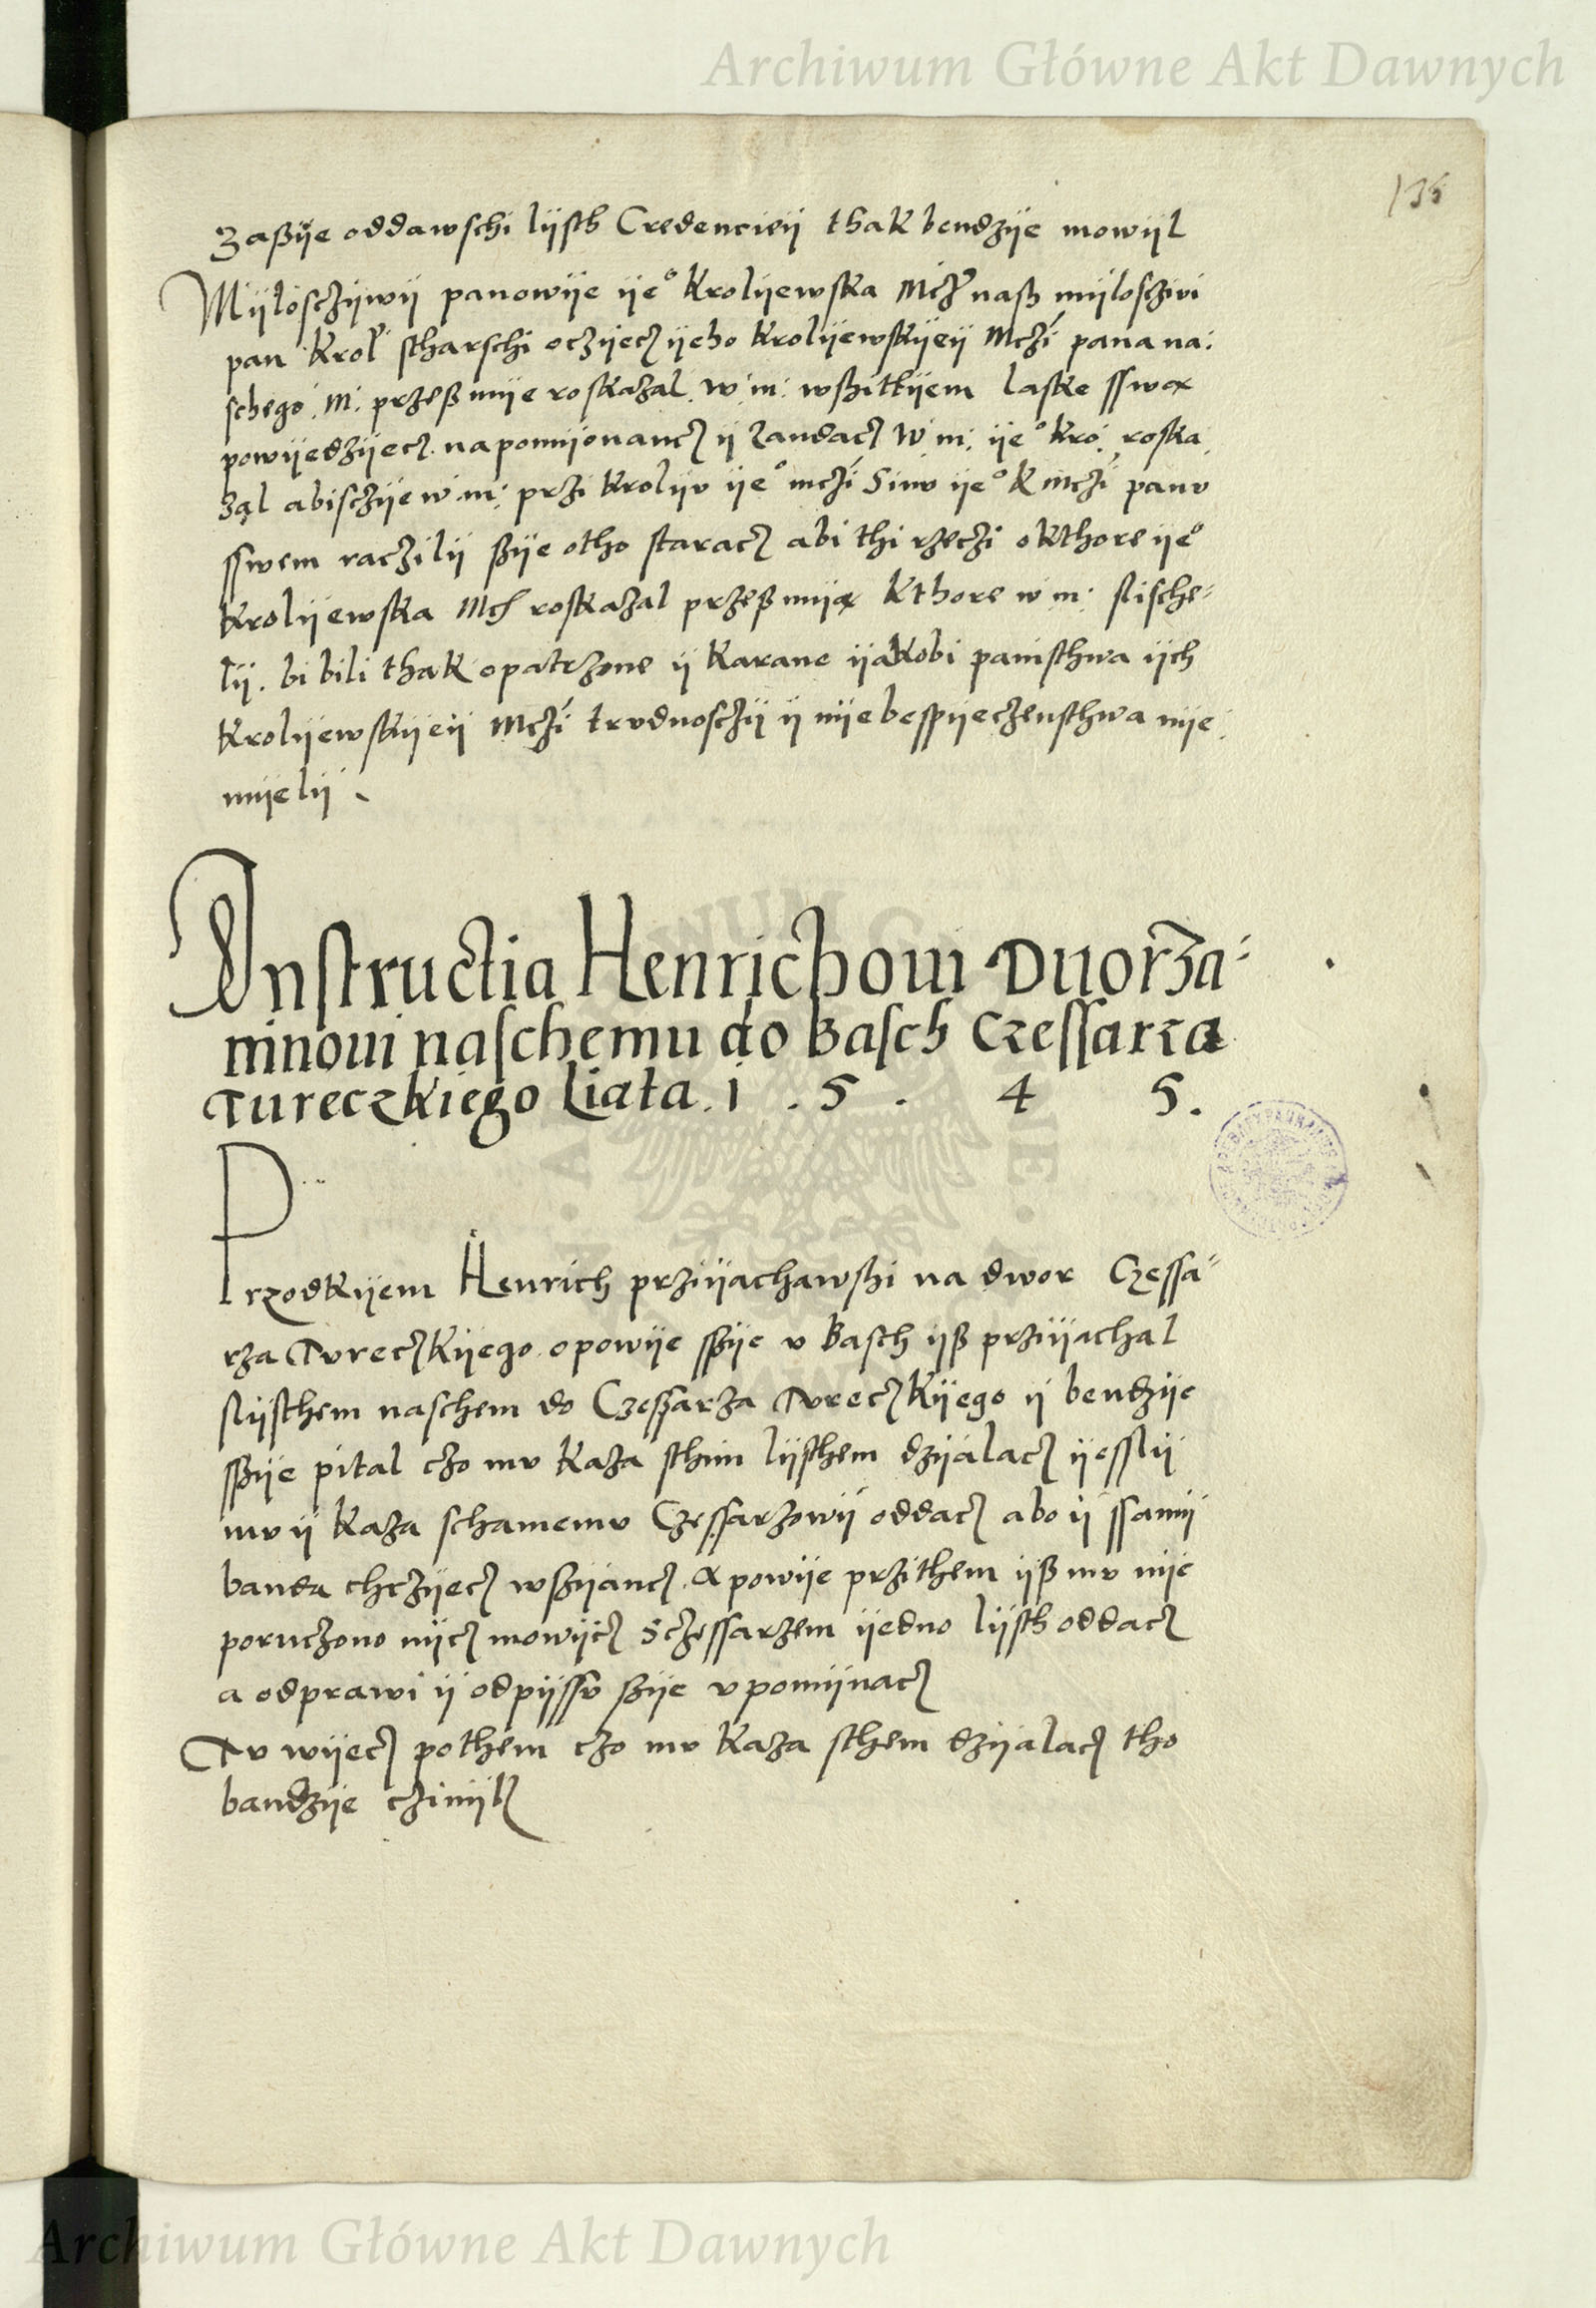 Archiwum Główne Akt Dawnych
135
Zaßÿe oddawschi lÿsth Credencieÿ thak bendzÿe mowÿl
Mÿłosczÿwÿ panowÿe ÿeº Krolÿewska Mczÿ naß mÿlosczivi
pan Krol scharschi oczÿecz ÿeho Krolÿewskÿeÿ Mczÿ pana na:
schego .M. przeß mÿe roskazal. W. m: wßitkÿem laske sswa
powÿedzÿecz. napomÿonancz ÿ zandacz W m: ÿeº Kro: roska
zal abisczÿe w m: przi Krolÿv ÿeº mczÿ Sinv ÿeº K mczÿ panv
sswem raczilÿ ßÿe otho staracz abi thi rzeczi okthore ÿeº
Krolÿewska Mcz roskazal przeß mÿa kthore w m: slische-
lÿ. bi bili thak opatrzone ÿ karane ÿakobi panisthwa ÿch
Krolÿewskÿeÿ Mczÿ trvdnosczÿ ÿ nÿebespÿeczensthwa nÿe
mÿelÿ
Instructia Henrichovi Dvorza-
ninovi naschemu do Basch Czessarza
Tureczkiego Liata. 1 . 5 . 4 5.
Przodkÿem Henrich przÿÿachawßi na dwor Czessa-
rza Tvreczkÿego opowÿe ssÿe v Basch ÿß przÿÿachal
slÿsthem naschem do Czessarza Tvreczkÿego ÿ bendzÿe
ssÿe pital czo mv kaza sthim lÿsthem dzÿalacz ÿesslÿ
mv ÿ kaza schamemv Czessarzowÿ oddacz abo ÿ ssamÿ
banda chczÿecz wßÿancz. A powÿe przithem ÿß mv nÿe
poruczono nÿcz mowÿcz sczessarzem ÿedno lÿsth oddacz
a odprawi ÿ odpÿssv ßÿe vpomÿnacz
Tv wÿecz pothem czo mv kaza sthem dzÿalacz tho
bandzÿe czinÿl
Archiwum Główne Akt Dawnych